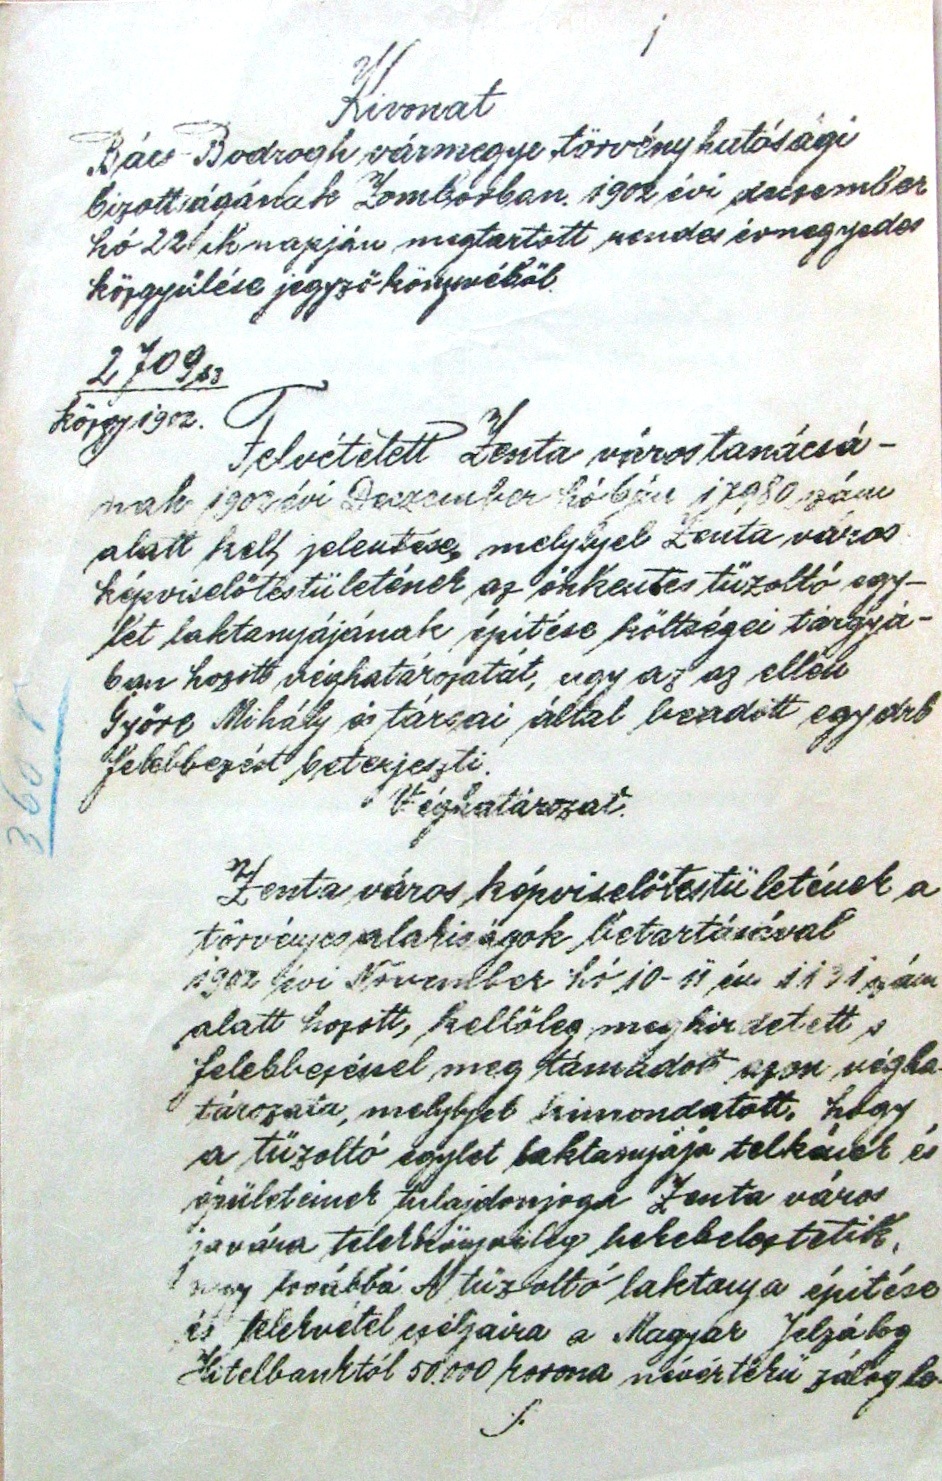 1
Kivonat
Bács-Bodrogh vármegye törvényhatósági
bizottságának Zomborban 1902 évi december
hó 22 ik napján megtartott rendes évnegyedes
közgyülése jegyzőkönyvéből.
2709 sz
közgy 1902.
Felvétetett Zenta város tanácsá-
nak 1902 évi Deczember hó 17980 szám
alatt kelt jelentése, melylyel Zenta város
képviselőtestületének az önkéntes tüzoltó egy-
let laktanyájának épitése költségei tárgyá-
ban hozott véghatározatát, ugy az az ellen
Győre Mihály és társai által beadott egy drb
felebbezést beterjeszti.
Véghatározat.
360
Zenta város képviselőtestületének a
törvényes alakiságok betartásával
1902 évi November hó 10-11 én 1131 szám
alatt hozott, kellőleg meghirdetett s
felebbezésel meg támadott azon végha-
tározata, melylyel kimondatott, hogy
a tüzoltó egylet laktanyája telkének és
épületeinek tulajdonjoga Zenta város
javára telekkönyvileg bekebeleztetik,
ugy továbbá A tüzoltó laktanya épitése
és telekvétel czéljaira a Magyar Jelzálog
Hitelbanktól 50.000 korona névértékü záloglé-